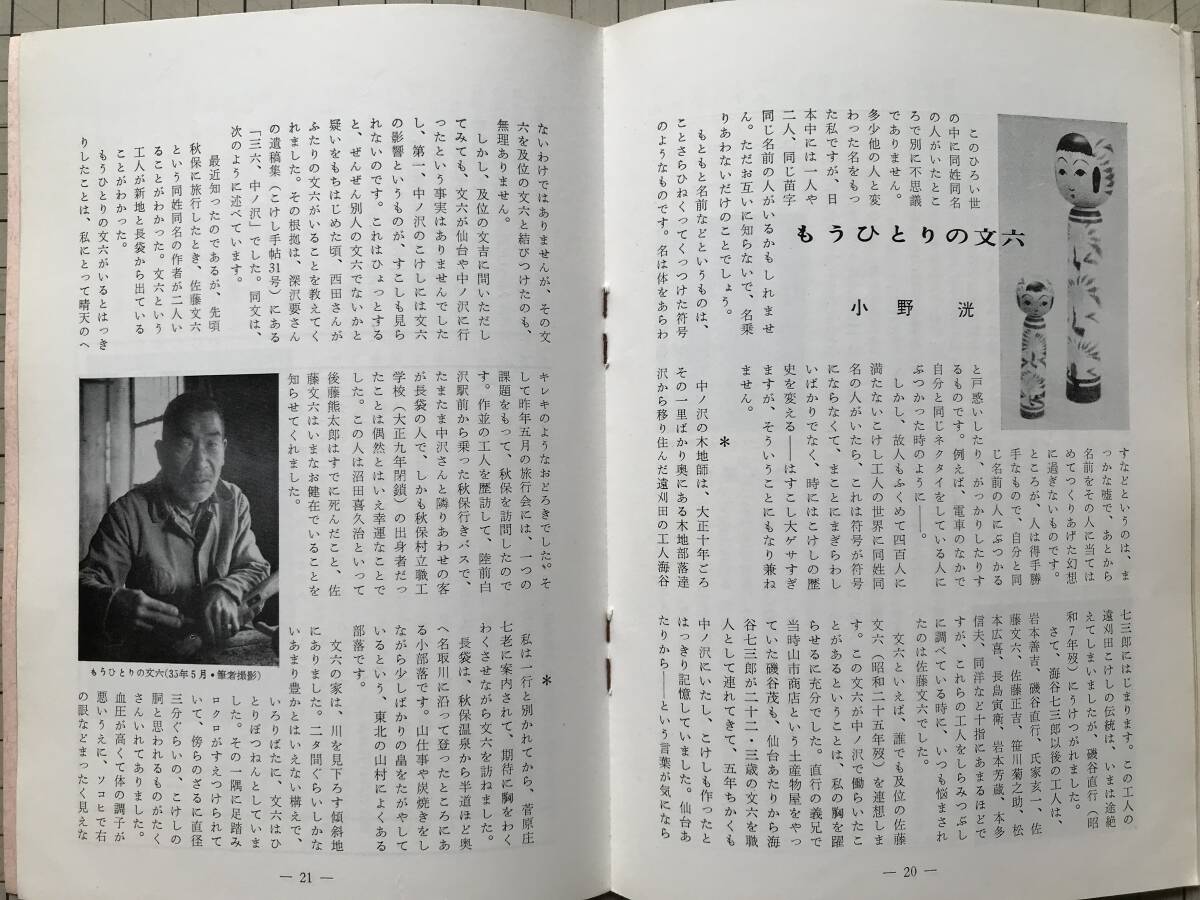 もうひとりの文六
小野洸
このひろい世
の中に同姓同名
の人がいたとこ
ろで別に不思議
でありません。
多少他の人と変
わった名をもっ
た私ですが、日
本中には一人や
二人、同じ苗字
同じ名前の人がいるかもしれませ
ん。ただお互いに知らないで、名乗
りあわないだけのことでしょう。
もともと名前などというものは、
ことさらひねくってくっつけた符号
のようなものです。名は体をあらわ
すなどというのは、ま
っかな嘘で、あとから
名前をその人に当ては
めてつくりあげた幻想
に過ぎないものです。
ところが、人は得手勝
手なもので、自分と同
じ名前の人にぶつかる
と戸惑いしたり、がっかりしたりす
るものです。例えば、電車のなかで
自分と同じネクタイをしている人に
ぶつかった時のように――。
しかし、故人もふくめて四百人に
満たないこけし工人の世界に同姓同
名の人がいたら、これは符号が符号
にならなくて、まことにまぎらわし
いばかりでなく、時にはこけしの歴
史を変える――はすこし大ゲサすぎ
ますが、そういうことにもなり兼ね
ません。
*
中ノ沢の木地師は、大正十年ごろ
その一里ばかり奥にある木地部落達
沢から移り住んだ遠刈田の工人海谷
七三郎にはじまります。この工人の
遠刈田こけしの伝統は、いまは途絶
えてしまいましたが、磯谷直行(昭
和7年歿)にうけつがれました。
さて、海谷七三郎以後の工人は、
岩本善吉、磯谷直行、氏家亥一、佐
藤文六、佐藤正吉、笹川菊之助、松
本広喜、長島寅衛、岩本芳蔵、本多
信夫、同洋など十指にあまるほどで
すが、これらの工人をしらみつぶし
に調べている時に、いつも悩まされ
たのは佐藤文六でした。
文六といえば、誰でも及位の佐藤
文六(昭和二十五年歿)を連想しま
す。この文六が中ノ沢で働らいたこ
とがあるということは、私の胸を躍
らせるに充分でした。直行の義兄で
当時山市商店という土産物屋をやっ
ていた磯谷茂も、仙台あたりから海
谷七三郎が二十二・三歳の文六を職
人として連れてきて、五年ちかくも
中ノ沢にいたし、こけしも作ったと
はっきり記憶していました。仙台あ
たりから――という言葉が気になら
― 20 ―
ないわけではありませんが、その文
六を及位の文六と結びつけたのも、
無理ありません。
しかし、及位の文吉に問いただし
てみても、文六が仙台や中ノ沢に行
ったという事実はありませんでした
し、第一、中ノ沢のこけしには文六
の影響というものが、すこしも見ら
れないのです。これはひょっとする
と、ぜんぜん別人の文六でないかと
疑いをもちはじめた頃、西田さんが
ふたりの文六がいることを教えてく
れました。その根拠は、深沢要さん
の遺稿集(こけし手帖31号)にある
「三六、中ノ沢」でした。同文は、
次のように述べています。
最近知ったのであるが、先頃
秋保に旅行したとき、佐藤文六
という同姓同名の作者が二人い
ることがわかった。文六という
工人が新地と長袋から出ている
ことがわかった。
もうひとりの文六がいるとはっき
りしたことは、私にとって晴天のヘ
キレキのようなおどろきでした。そ
して昨年五月の旅行会には、一つの
課題をもって、秋保を訪問したので
す。作並の工人を歴訪して、陸前白
沢駅前から乗った秋保行きバスで、
たまたま中沢さんと隣りあわせの客
が長袋の人で、しかも秋保村立職工
学校(大正九年閉鎖)の出身者だっ
たことは偶然とはいえ幸運なことで
した。この人は沼田喜久治といって
後藤熊太郎はすでに死んだこと、佐
藤文六はいまなお健在でいることを
知らせてくれました。
もうひとりの文六(35年5月・筆者撮影)
*
私は一行と別かれてから、菅原庄
七老に案内されて、期待に胸をわく
わくさせながら文六を訪ねました。
長袋は、秋保温泉から半道ほど奥
へ名取川に沿って登ったところにあ
る小部落です。山仕事や炭焼きをし
ながら少しばかりの畠をたがやして
いるという、東北の山村によくある
部落です。
文六の家は、川を見下ろす傾斜地
にありました。二タ間ぐらいしかな
いあまり豊かとはいえない構えで、
いろりばたに、文六はひ
とりぽつねんとしていま
した。その一隅に足踏み
ロクロがすえつけられて
いて、傍らのざるに直径
三分ぐらいの、こけしの
胴と思われるものがたく
さんいれてありました。
血圧が高くて体の調子が
悪いうえに、ソコヒで右
の眼などまったく見えな
― 21 ―